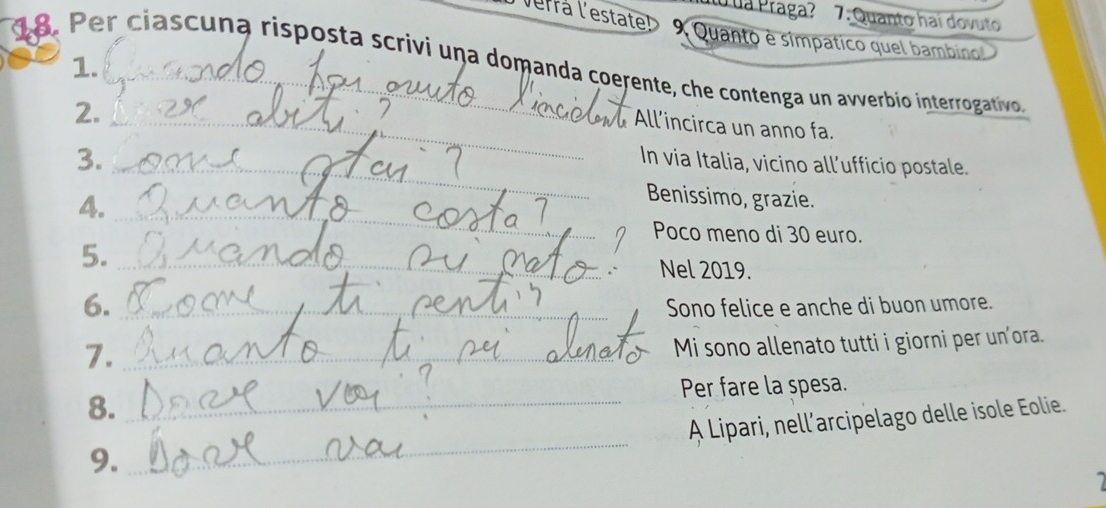 verrà l'estate!
da Praga? 7. Quanto hai dovuto
9. Quanto è simpatico quel bambino!
18. Per ciascuna risposta scrivi una domanda coerente, che contenga un avverbio interrogativo.
1. Quando hai avuto l'incidente All'incirca un anno fa.
2. Dove abiti? In via Italia, vicino all'ufficio postale.
3. Come stai? Benissimo, grazie.
4. Quanto costa? Poco meno di 30 euro.
5. Quando sei nato? Nel 2019.
6. Come ti senti? Sono felice e anche di buon umore.
7. Quanto ti sei alenato Mi sono allenato tutti i giorni per un'ora.
8. Dove vai? Per fare la spesa.
9. Dove vai A Lipari, nell'arcipelago delle isole Eolie.